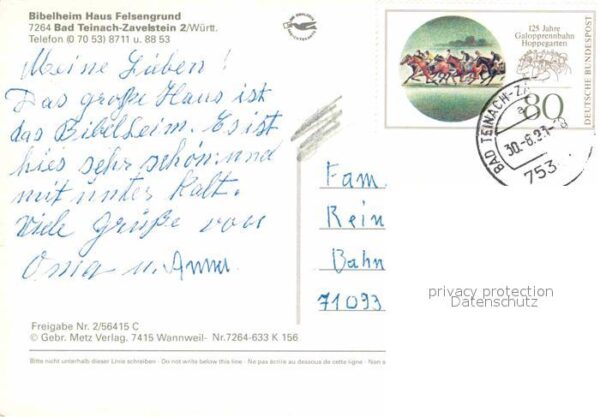 Bibelheim Haus Felsengrund
7264 Bad Teinach-Zavelstein 2/Württ.
Telefon (0 70 53) 8711 u. 88 53
Meine Lieben!
Das große Haus ist
das Bibelheim. Es ist
hies sehr schön und
mit unter kalt.
Viele Grüße von
Oma u. Anna.
Freigabe Nr. 2/56415 C
© Gebr. Metz Verlag, 7415 Wannweil- Nr.7264-633 K 156
Bitte nicht unterhalb dieser Linie schreiben · Do not write below this line · Ne pas écrire au dessous de cette ligne · Non s
125 Jahre
Galopprennbahn
Hoppegarten
80
DEUTSCHE BUNDESPOST
BAD TEINACH-ZA
30.-8.93-8
753
Fam.
Rein
Bahn
71093
privacy protection
Datenschutz